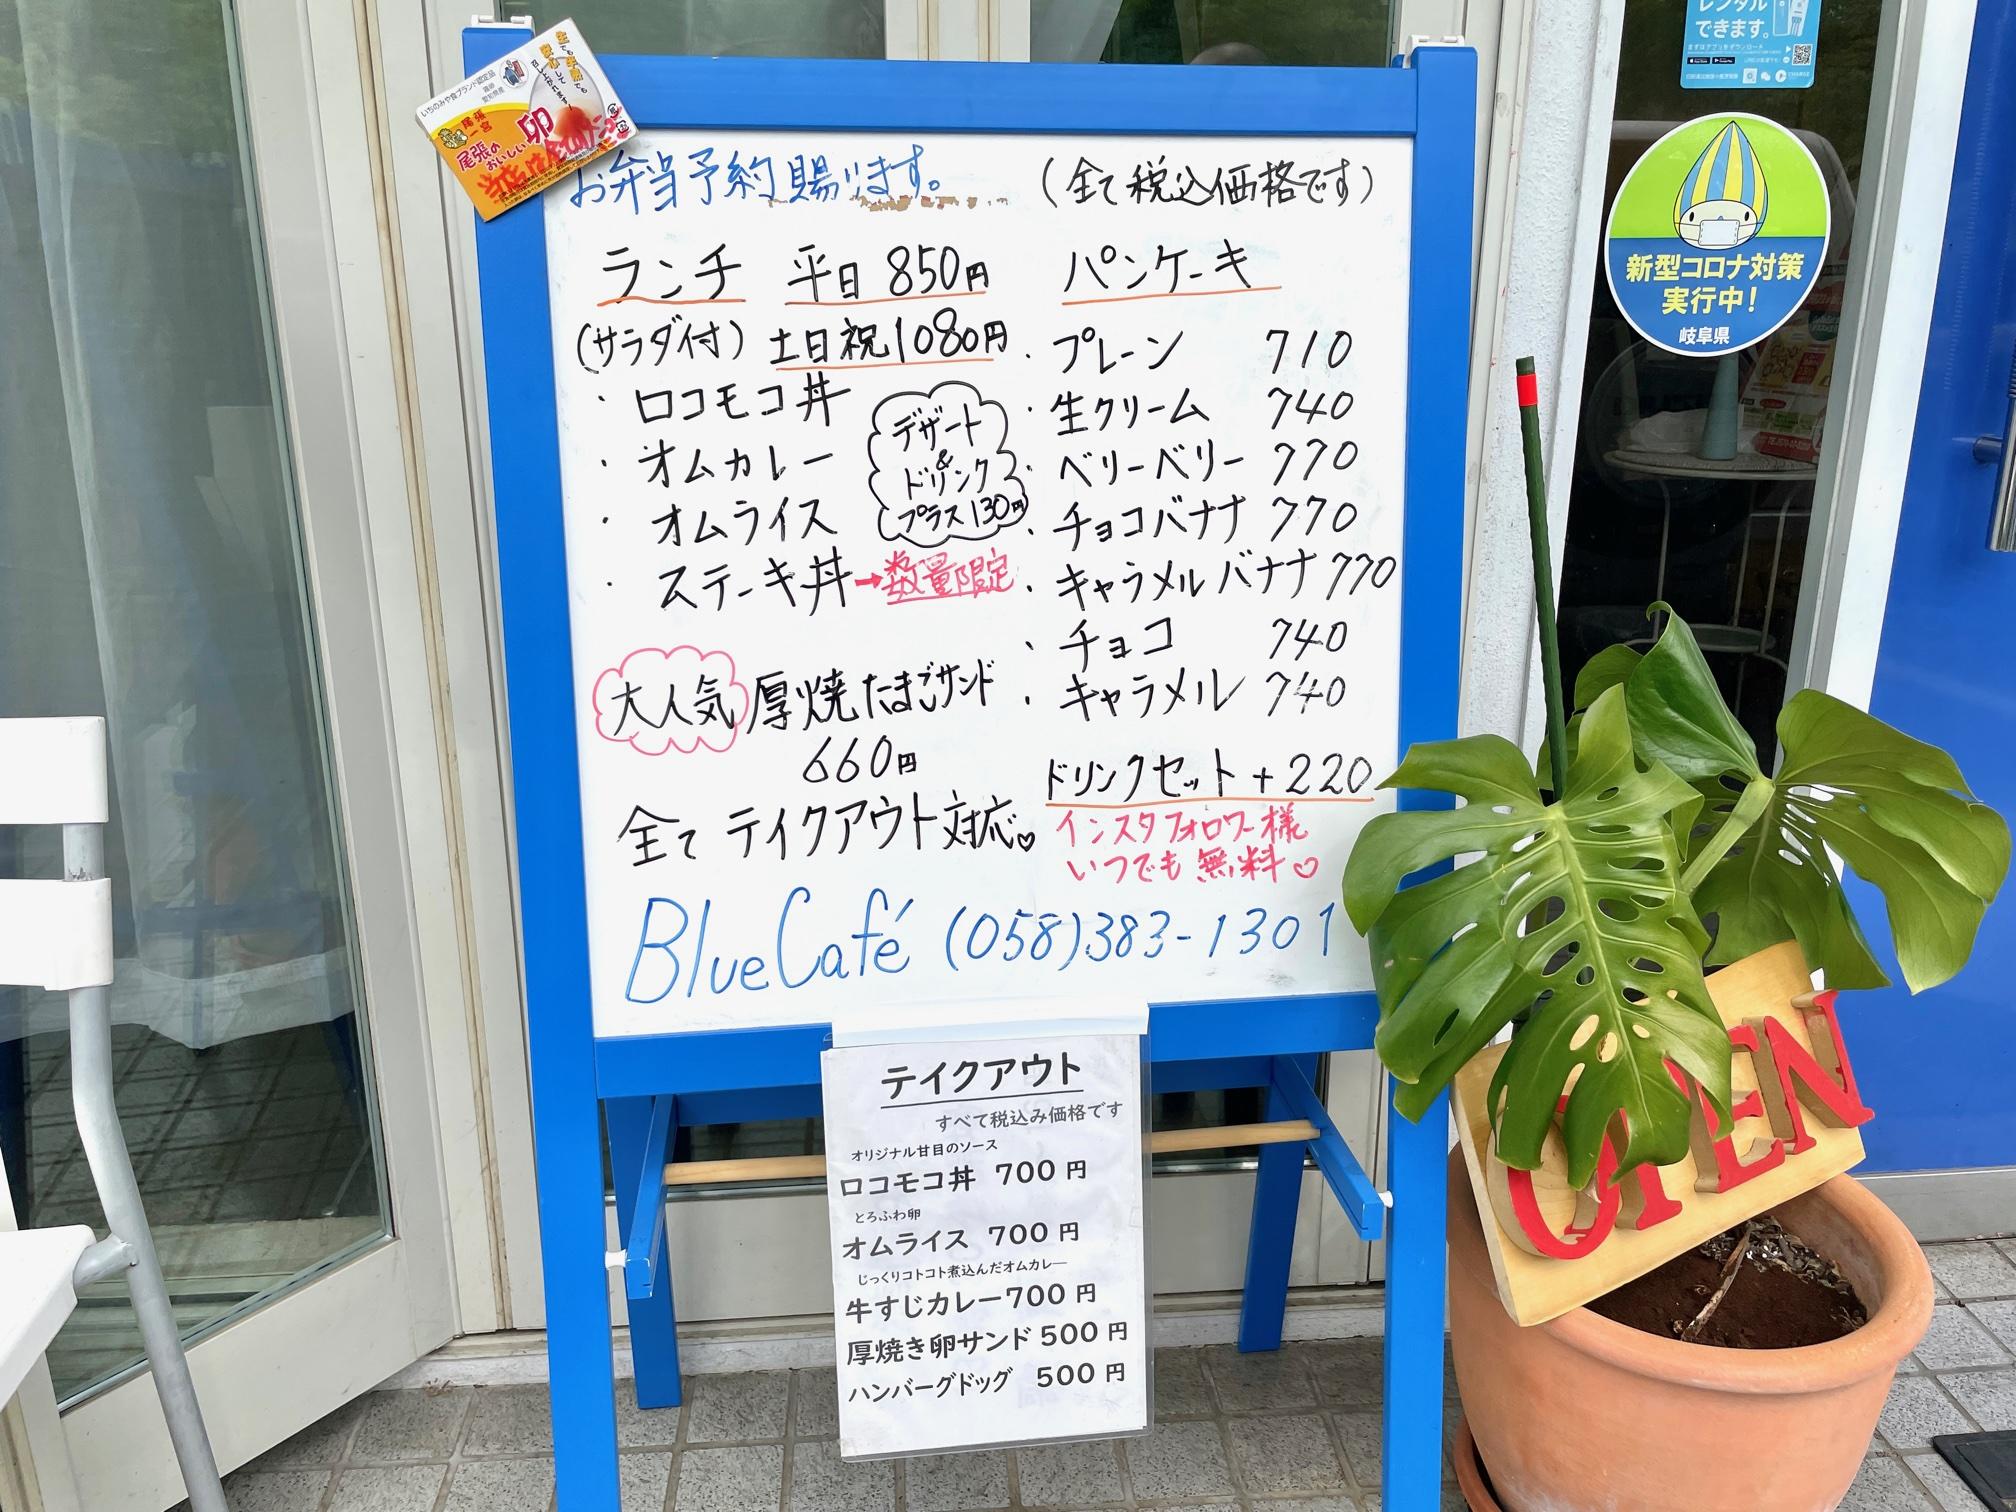 お弁当予約賜ります。
(全て税込価格です)
ランチ 平日 850円
(サラダ付) 土日祝1080円
・ロコモコ丼
・オムカレー
・オムライス
・ステーキ丼→数量限定
デザート
&
ドリンク
プラス130円
大人気 厚焼たまごサンド
660円
全てテイクアウト対応♡
パンケーキ
・プレーン 710
・生クリーム 740
・ベリーベリー 770
・チョコバナナ 770
・キャラメルバナナ 770
・チョコ 740
・キャラメル 740
ドリンクセット+220
インスタフォロワー様
いつでも無料♡
BlueCafé (058)383-1301
テイクアウト
すべて税込み価格です
オリジナル甘目のソース
ロコモコ丼 700円
とろふわ卵
オムライス 700円
じっくりコトコト煮込んだオムカレー
牛すじカレー700円
厚焼き卵サンド 500円
ハンバーグドッグ 500円
いちのみや食ブランド認定品
尾張
一宮
尾張の
おいしい卵
レンタル
できます。
新型コロナ対策
実行中!
岐阜県
OPEN